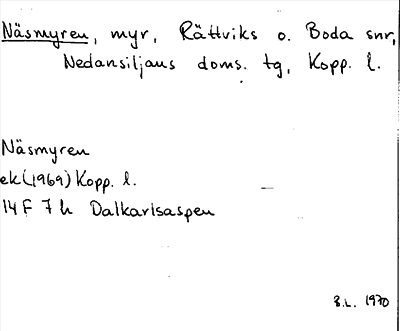 Näsmyren, myr, Rättviks o. Boda snr,
Nedansiljans doms. tg, Kopp. l.
Näsmyren
ek(1969) Kopp. l.
14 F 7 h Dalkarlsaspen
B.L. 1970